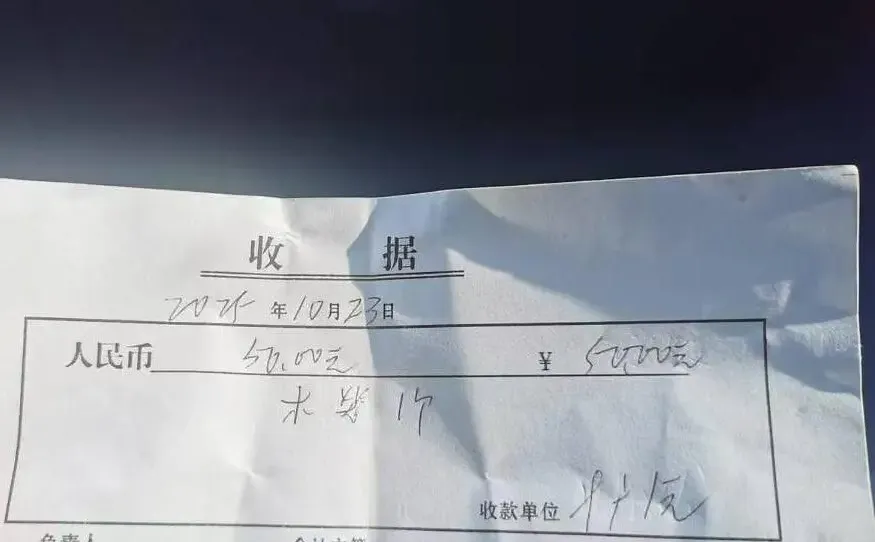 收据
2025年10月23日
人民币 50.00元 ¥ 50.00元
木 1个
收款单位
负责人